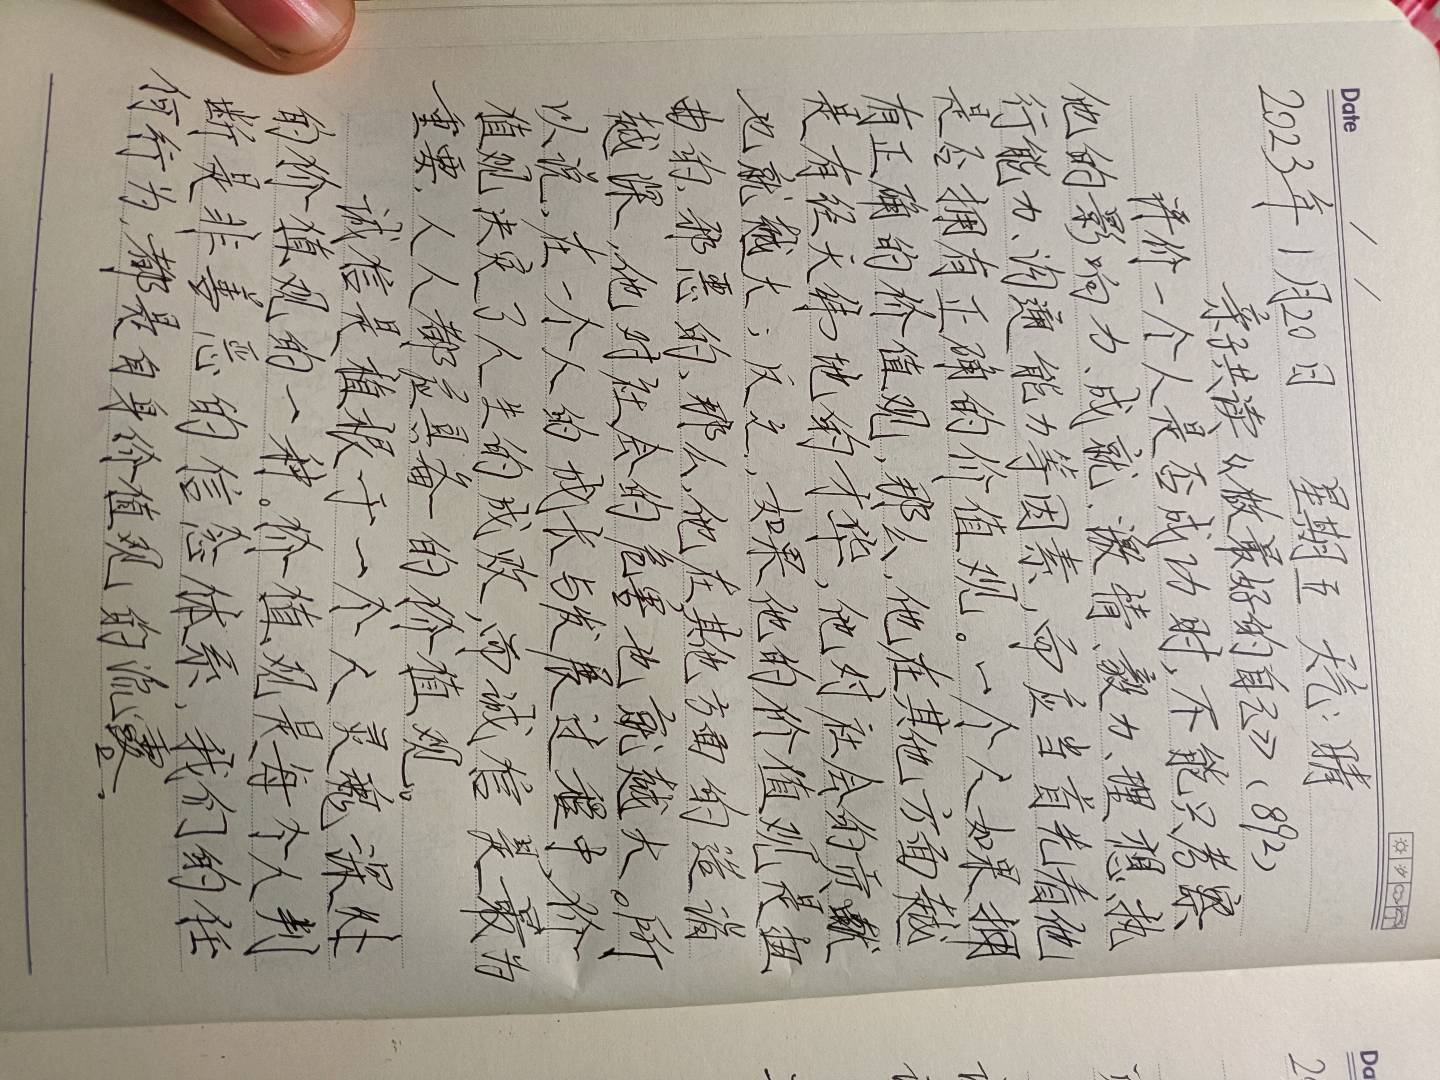 Date
2023年1月20日 星期五 天气:晴
亲子共读《做最好的自己》(892)
评价一个人是否成功时,不能只考察
他的影响力、成就、激情、毅力、理想、执
行能力、沟通能力等因素,而应当首先看他
是否拥有正确的价值观。一个人如果拥
有正确的价值观,那么,他在其他方面越
是有经天纬地的才华,他对社会的贡献
也就越大;反之,如果他的价值观是扭
曲的、邪恶的,那么,他在其他方面的造诣
越深,他对社会的危害也就越大。所
以说,在一个人的成长与发展过程中,价
值观决定了人生的成败,而诚信是最为
重要、人人都应具备的价值观。
诚信是植根于一个人灵魂深处
的价值观的一种。价值观是每个人判
断是非善恶的信念体系,我们的任
何行为,都是自身价值观的流露。
Da
2